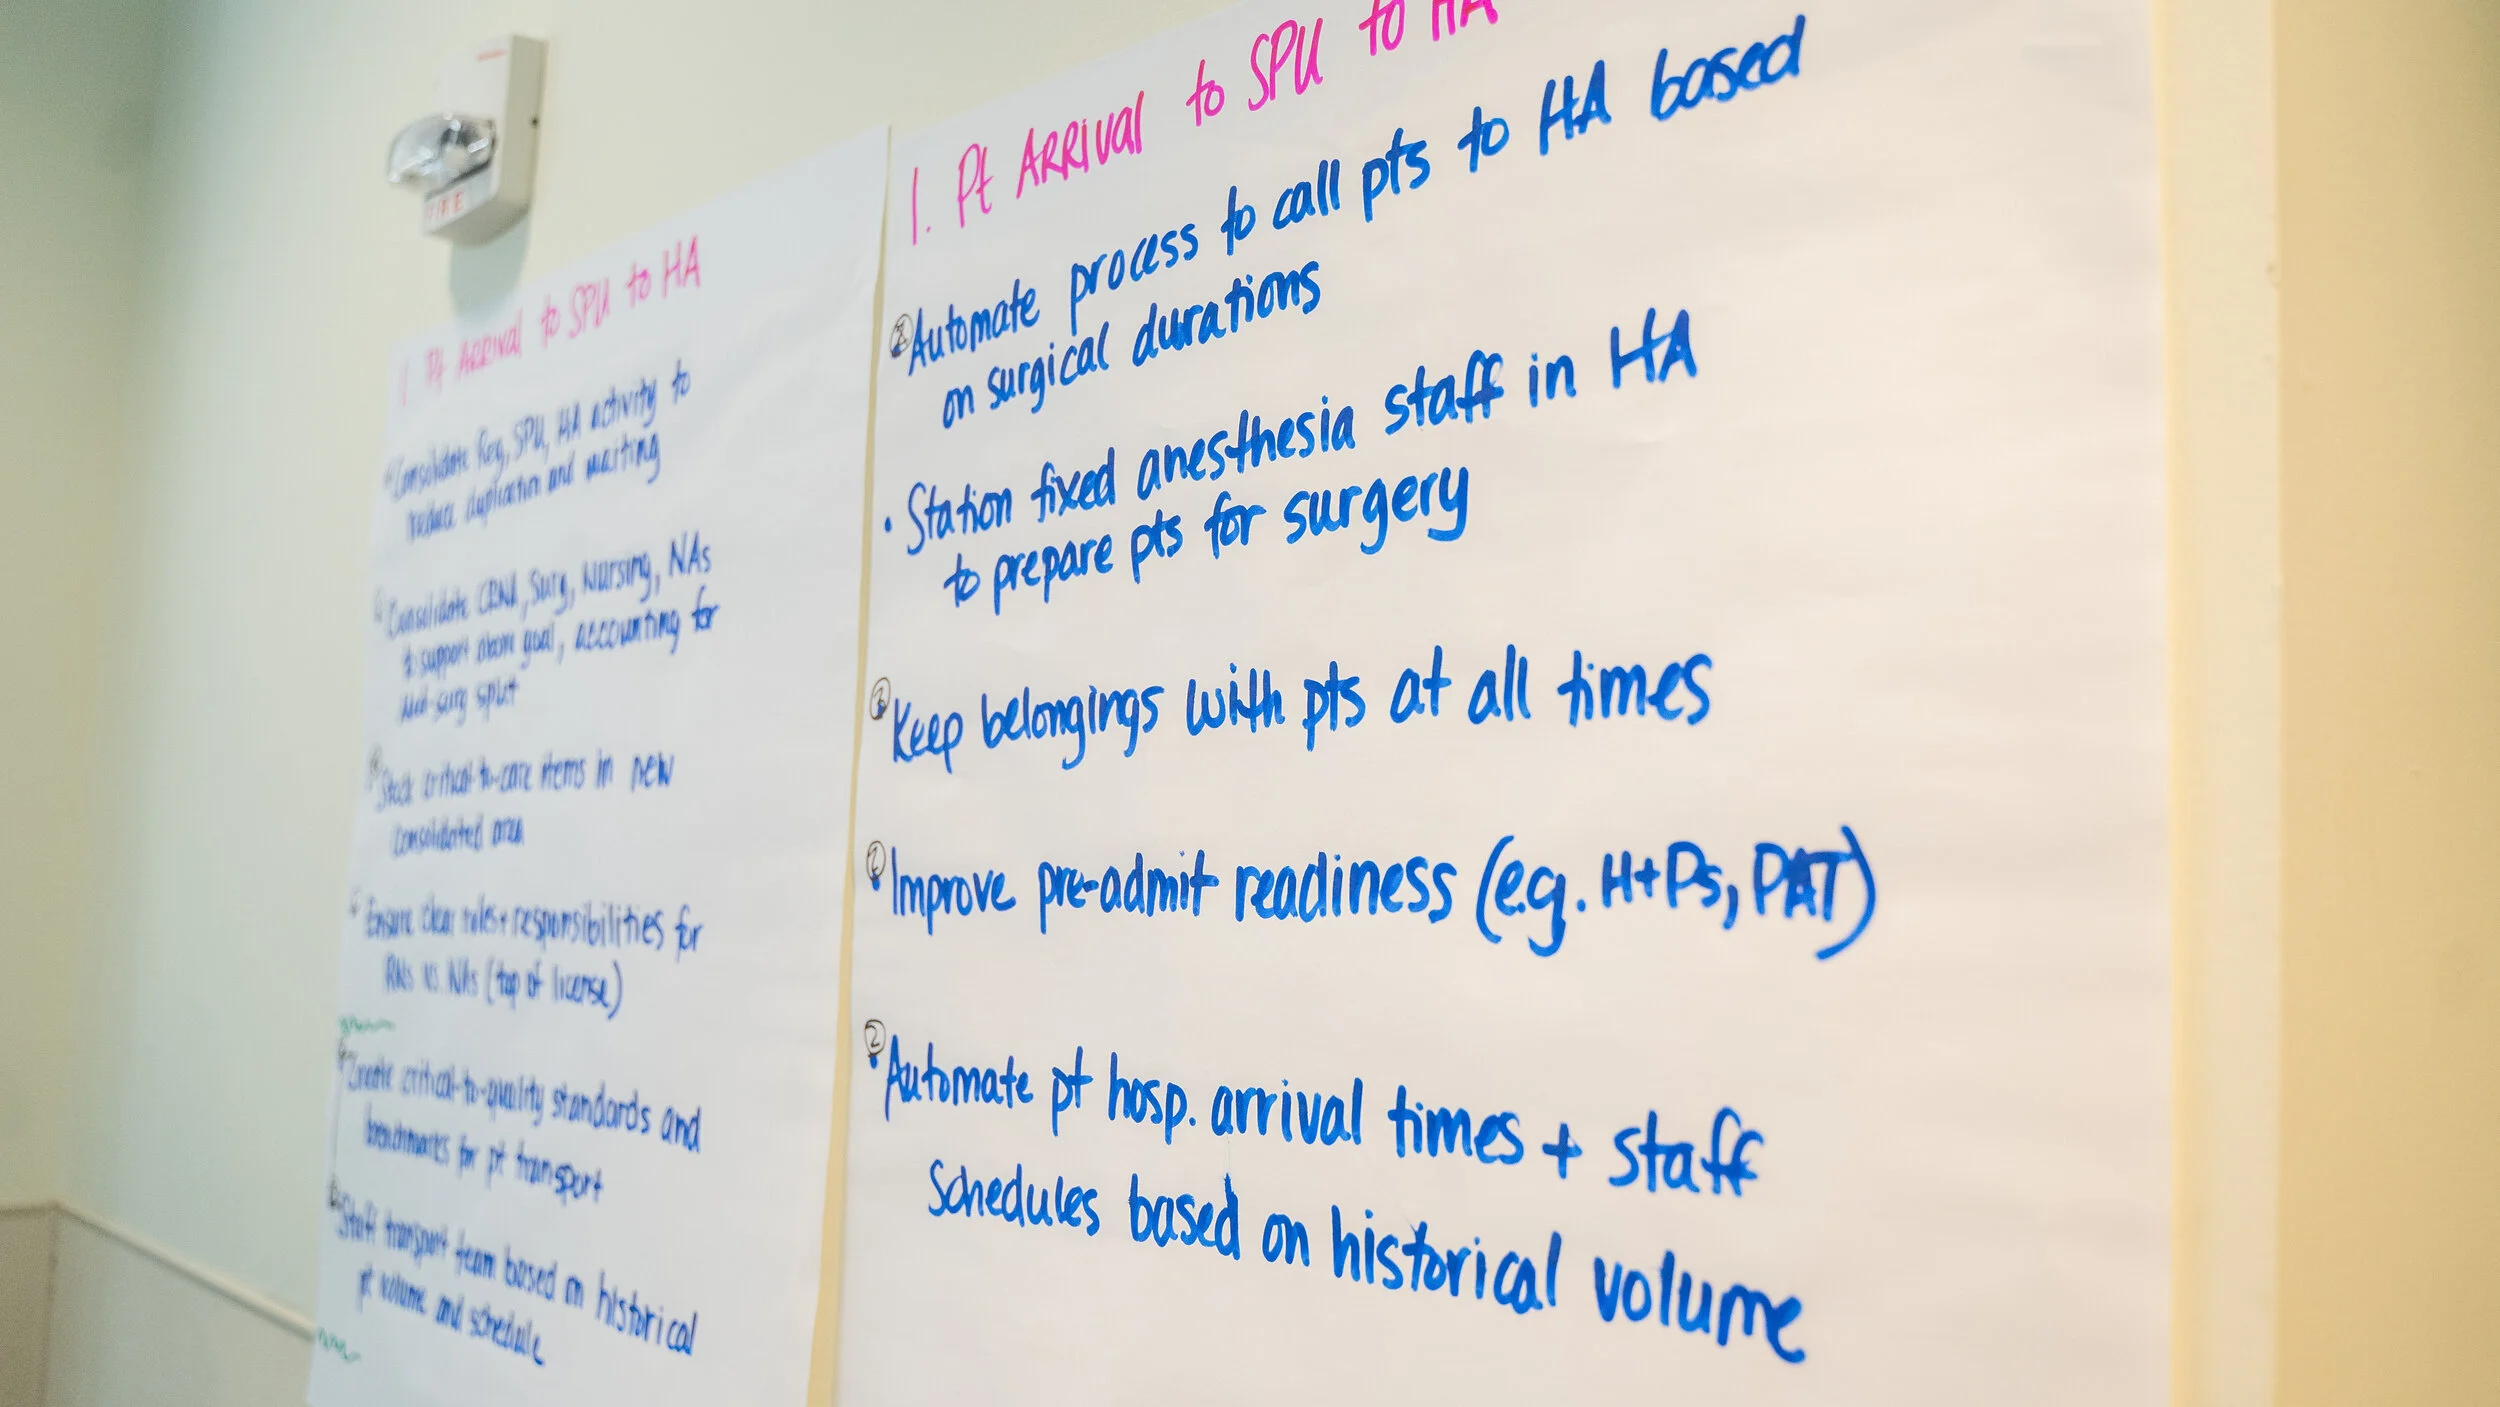 FIRE
1. Pt ARRIVAL to SPU to HA
• Consolidate Reg, SPU, HA activity to
reduce duplication and waiting
• Consolidate CRNA, Surg, Nursing, NAs
to support above goal, accounting for
split
• Stock critical-to-care items in new
consolidated area
• Ensure clear roles + responsibilities for
RNs vs. NAs (top of license)
• Create critical-to-quality standards and
benchmarks for pt transport
• Staff transport team based on historical
pt volume and schedule
1. Pt ARRIVAL to SPU to HA
Automate process to call pts to HA based
on surgical durations
• Station fixed anesthesia staff in HA
to prepare pts for surgery
Keep belongings with pts at all times
• Improve pre-admit readiness (e.g. H+Ps, PAT)
② • Automate pt hosp. arrival times + staff
schedules based on historical volume